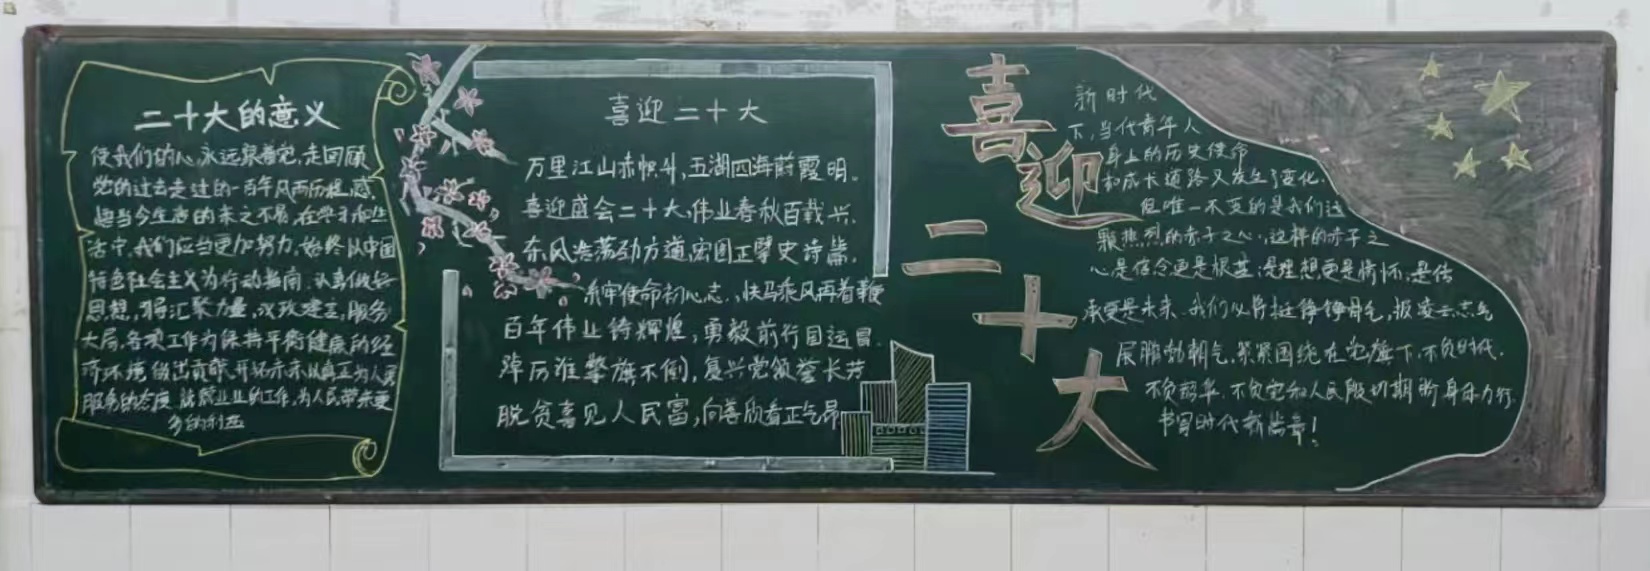 二十大的意义
使我们的心永远跟着党,走回顾
党的过去走过的一百年风雨历程,感
想当今生活的来之不易,在学习和生
活中,我们应当更加努力,始终以中国
特色社会主义为行动指南,认真做好
思想,凝汇聚力量,议政建言,服务
大局,各项工作为保持平衡健康的经
济环境做出贡献,开拓未来以真正为人民
服务的态度,兢兢业业的工作,为人民带来更
多的利益
喜迎二十大
万里江山赤帜升,五湖四海蔚霞明。
喜迎盛会二十大,伟业春秋百载兴,
东风浩荡劲方道,宏图正擘史诗篇,
牢使命初心志,快马乘风再着鞭
百年伟业铸辉煌,勇毅前行国运昌
踔厉淮擎旗不倒,复兴党领誉长芳
脱贫喜见人民富,向善欣看正气昂
喜迎二十大
新时代
下,当代青年人
身上的历史使命
和成长道路又发生了变化,
但唯一不变的是我们这
颗热烈的赤子之心,这样的赤子之
心是信念更是根基;是理想更是情怀;是传
承更是未来、我们必将挺铮铮骨气,拔凌云志气
展蓬勃朝气,紧紧围绕在党旗下,不负时代,
不负韶华,不负党和人民殷切期盼身体力行,
书写时代新篇章!